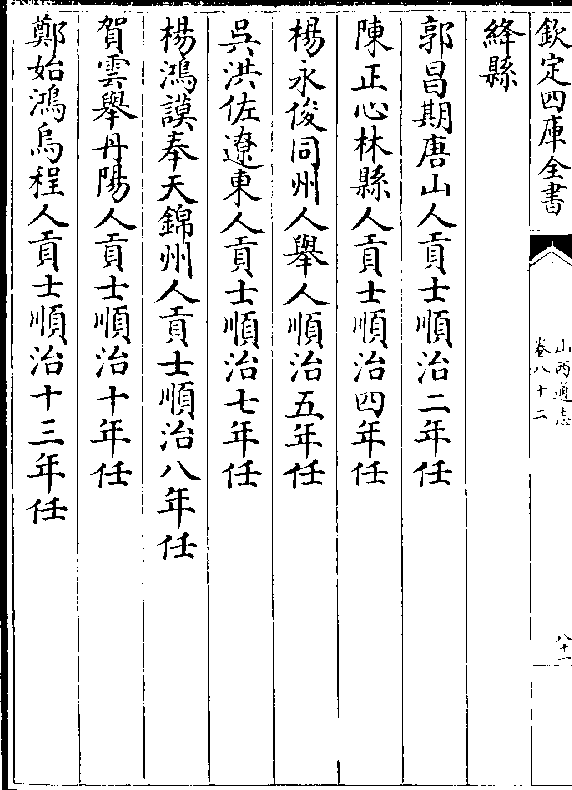 欽定四庫全書
山西通志
卷八十二
八十一
絳縣
郭昌期唐山人貢士順治二年任
陳正心林縣人貢士順治四年任
楊永俊同州人舉人順治五年任
吳洪佐遼東人貢士順治七年任
楊鴻謨奉天錦州人貢士順治八年任
賀雲舉丹陽人貢士順治十年任
鄭始鴻烏程人貢士順治十三年任